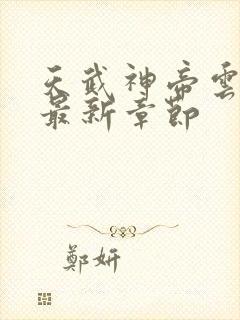 天武神帝雲
最新章節
鄭妍